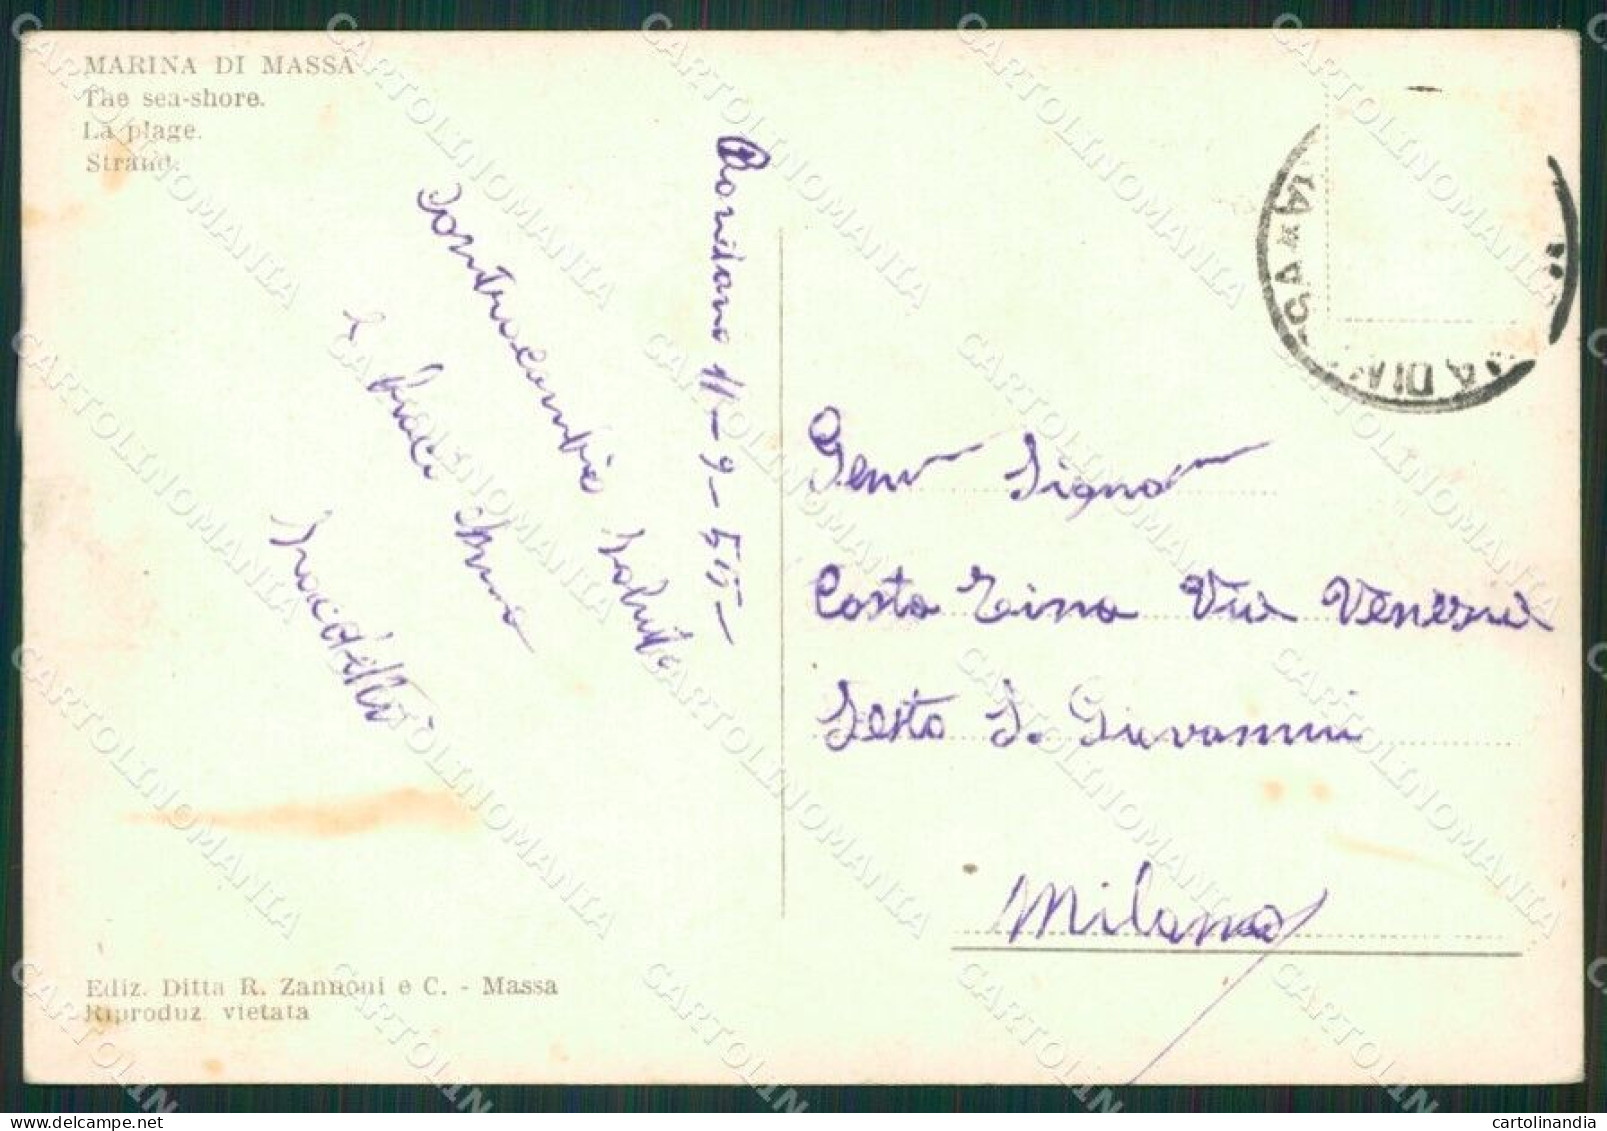 MARINA DI MASSA
The sea-shore.
La plage.
Strand.
11-9-55-
Contracambia Saluti
e Baci Anna
Gent Signa
Costa Tina Via Venezia
Sesto S. Giuvanni
Milano
Ediz. Ditta R. Zannoni e C. - Massa
Riproduz. vietata
CARTOLINOMANIA
cartolinandia